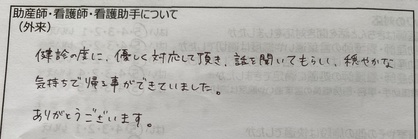 助産師・看護師・看護助手について
(外来)
健診の度に、優しく対応して頂き、話を聞いてもらい、穏やかな
気持ちで帰る事ができていました。
ありがとうございます。